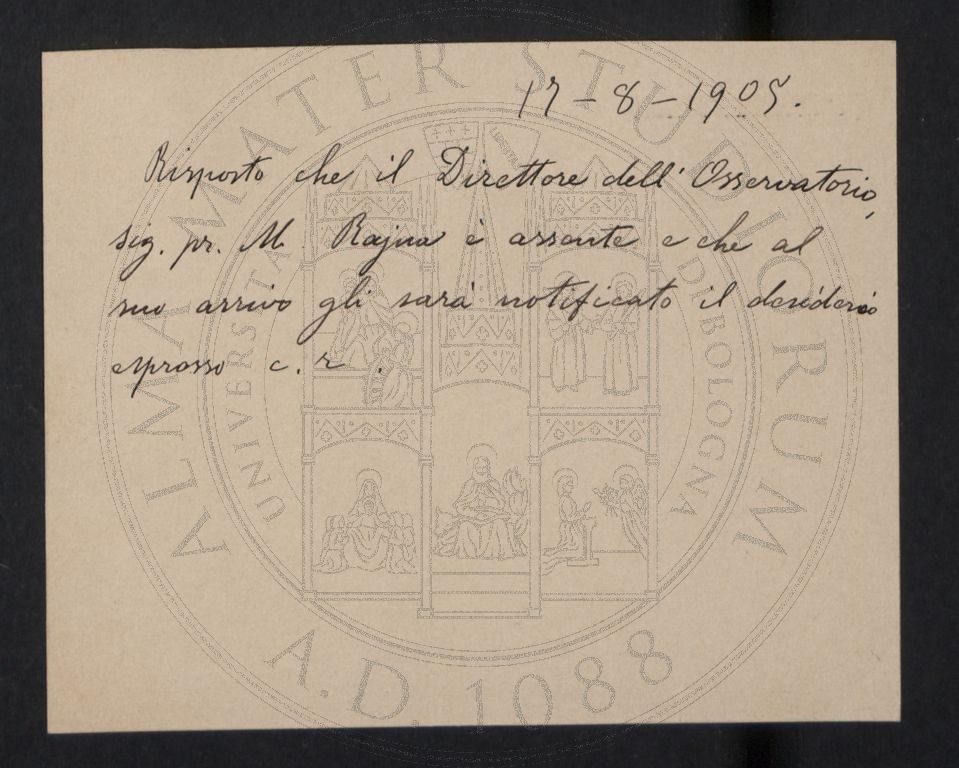 17-8-1905.
Risposto che il Direttore dell'Osservatorio,
sig. pr. M. Rajna è assente e che al
suo arrivo gli sarà notificato il desiderio
espresso c. r.
ALMA MATER STUDIORUM
UNIVERSITÀ DI BOLOGNA
LIBERTAS
A.D. 1088